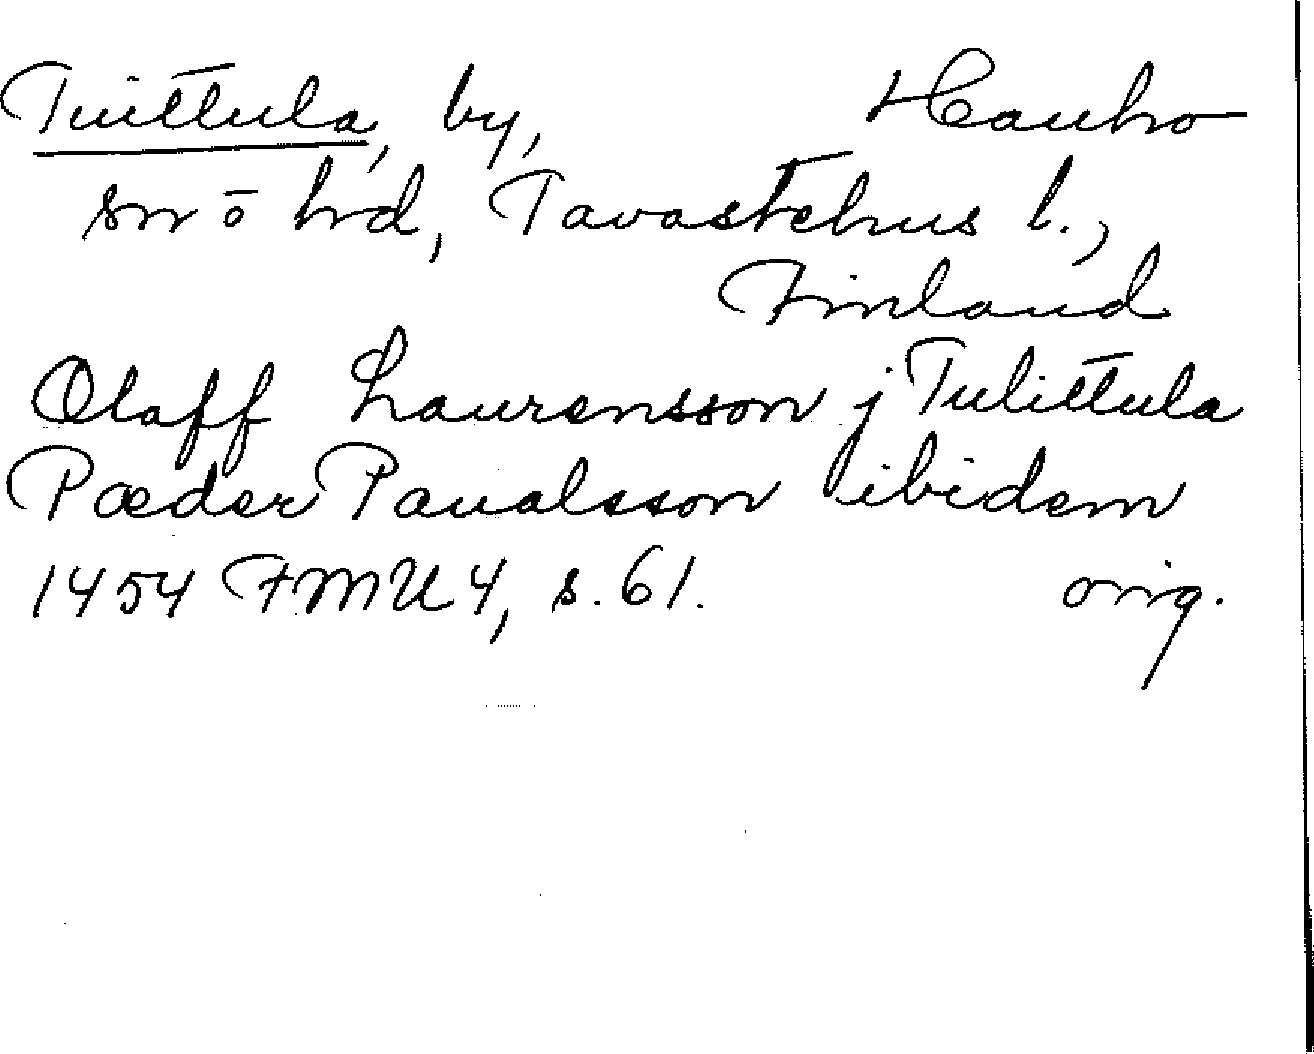 Tuittula, by, Hauho
sn ō hd, Tavastehus l.,
Finland
Olaff Laurensson j Tulittula
Pæder Paualsson ibidem
1454 FMU 4, s. 61. orig.